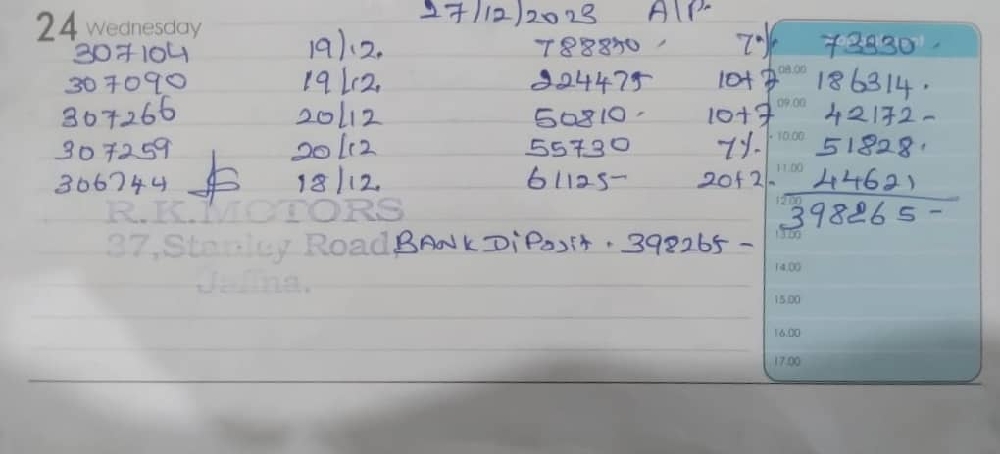 24 Wednesday 27/12/2023 A/P.
307104 19/12. 7% 73330.
307090 19/12. 224475 10+7 08.00 186314.
307266 20/12 50810- 10+7 09.00 42172-
307259 20/12 55730 7%. 10.00 51828.
306744 18/12. 61125- 11.00 44621
R.K.MOTORS 12.00 398265-
37,Stanley Road, BANK DiPosit. 398265- 13.00
Jaffna. 14.00
15.00
16.00
17.00